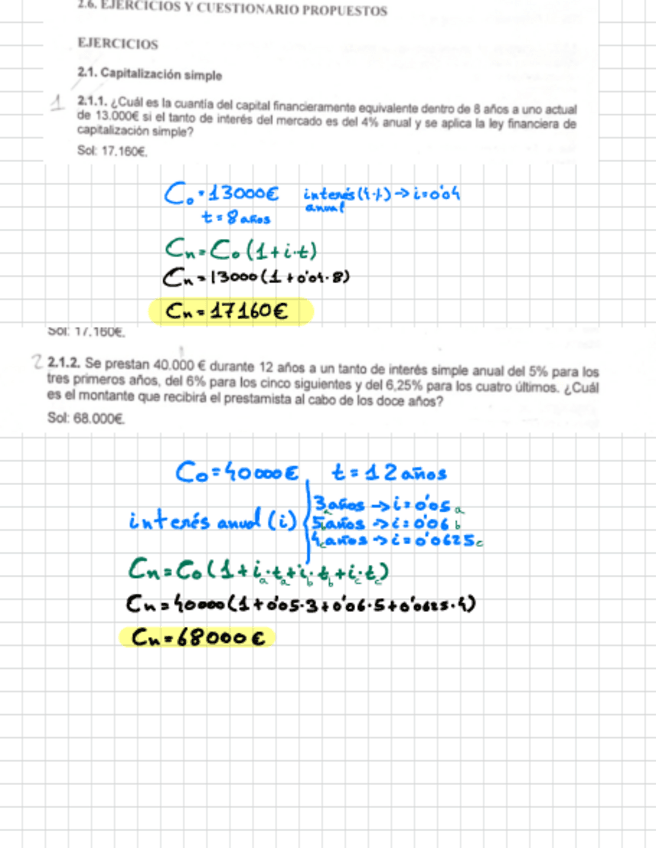 2.6. EJERCICIOS Y CUESTIONARIO PROPUESTOS
EJERCICIOS
2.1. Capitalización simple
1 2.1.1. ¿Cuál es la cuantía del capital financieramente equivalente dentro de 8 años a uno actual
de 13.000€ si el tanto de interés del mercado es del 4% anual y se aplica la ley financiera de
capitalización simple?
Sol: 17.160€.
C₀ = 13000€ interés (4%) → i = 0'04
anual
t = 8 años
Cn = C₀ (1 + i·t)
Cn = 13000 (1 + 0'04·8)
Cn = 17160€
Sol: 17.160€.
2 2.1.2. Se prestan 40.000 € durante 12 años a un tanto de interés simple anual del 5% para los
tres primeros años, del 6% para los cinco siguientes y del 6,25% para los cuatro últimos. ¿Cuál
es el montante que recibirá el prestamista al cabo de los doce años?
Sol: 68.000€.
C₀ = 40000€, t = 12 años
3 años → i = 0'05 a
interés anual (i) 5 años → i = 0'06 b
4 años → i = 0'0625 c
Cn = C₀ (1 + i·t + i·t + i·t)
a a b b c c
Cn = 40000 (1 + 0'05·3 + 0'06·5 + 0'0625·4)
Cn = 68000 €